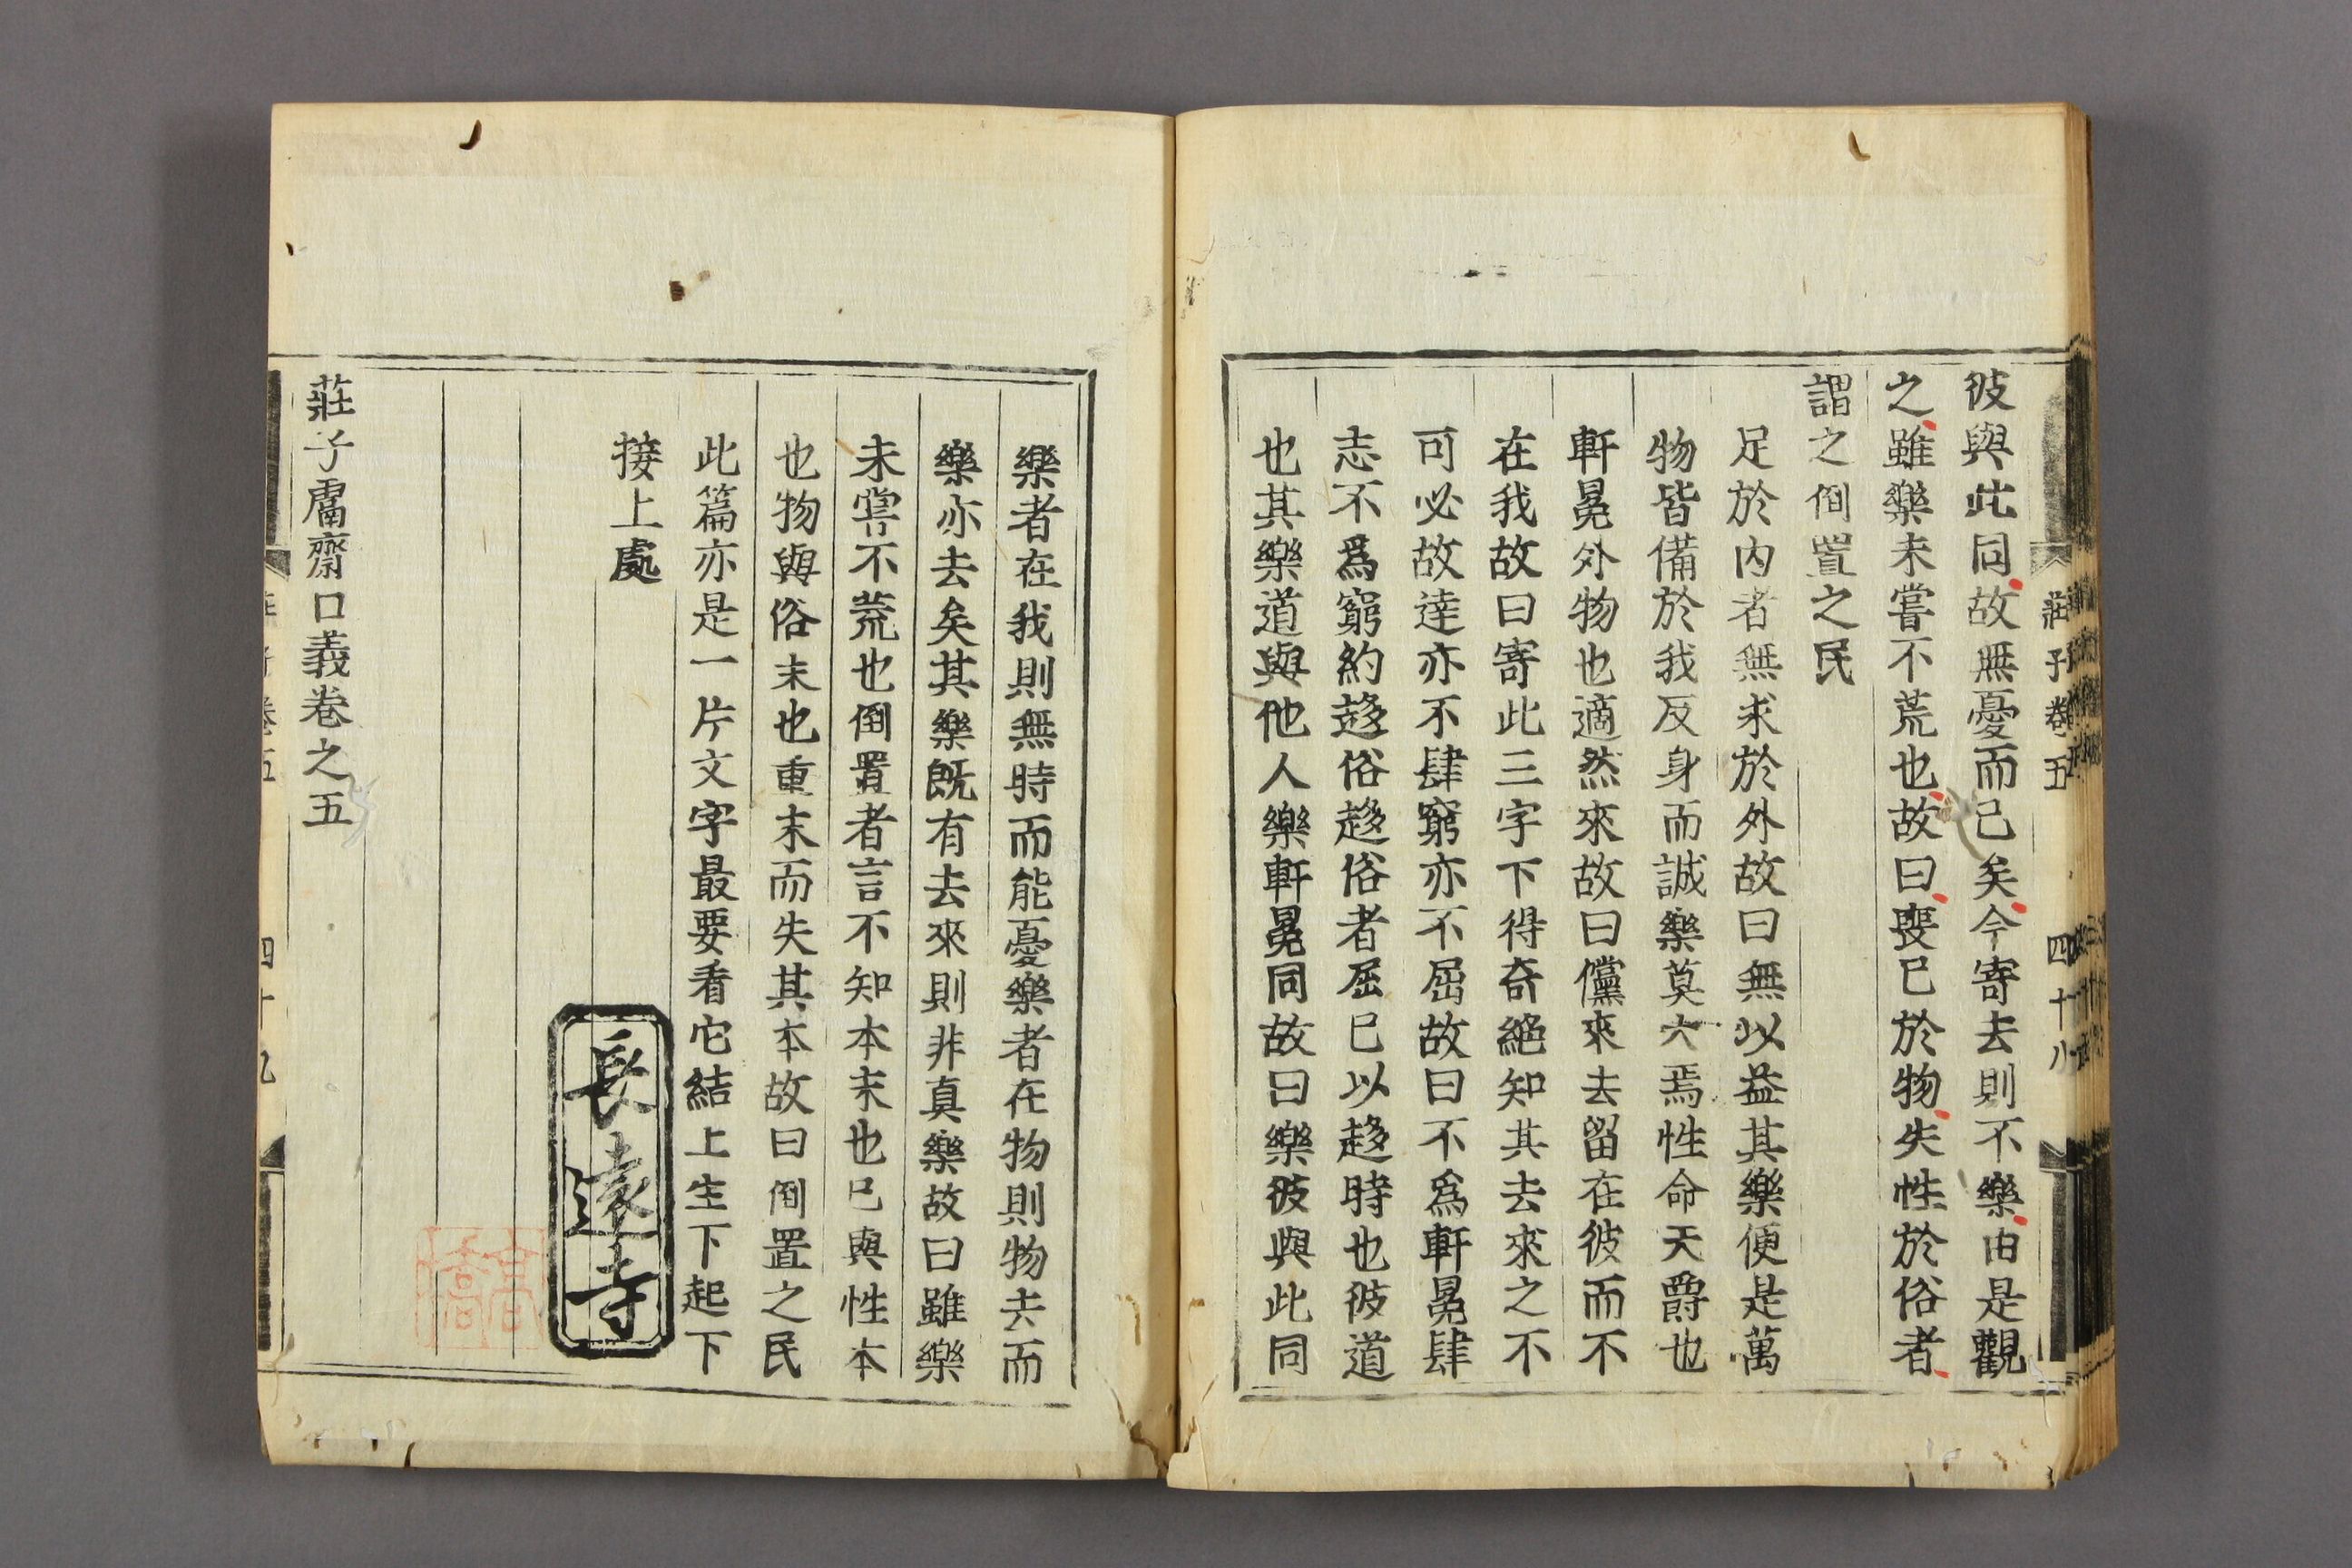 莊子卷五
四十八
彼與此同故無憂而已矣今寄去則不樂由是觀
之雖樂未嘗不荒也故曰喪已於物失性於俗者
謂之倒置之民
足於內者無求於外故曰無以益其樂便是萬
物皆備於我反身而誠樂莫大焉性命天爵也
軒冕外物也適然來故曰儻來去留在彼而不
在我故曰寄此三字下得奇絕知其去來之不
可必故達亦不肆窮亦不屈故曰不爲軒冕肆
志不爲窮約趍俗趍俗者屈已以趍時也彼道
也其樂道與他人樂軒冕同故曰樂彼與此同
樂者在我則無時而能憂樂者在物則物去而
樂亦去矣其樂既有去來則非真樂故曰雖樂
未甞不荒也倒置者言不知本末也已與性本
也物與俗末也重末而失其本故曰倒置之民
此篇亦是一片文字最要看它結上生下起下
接上處
長遠寺
高橋
莊子鬳齋口義卷之五
莊子卷五
四十九